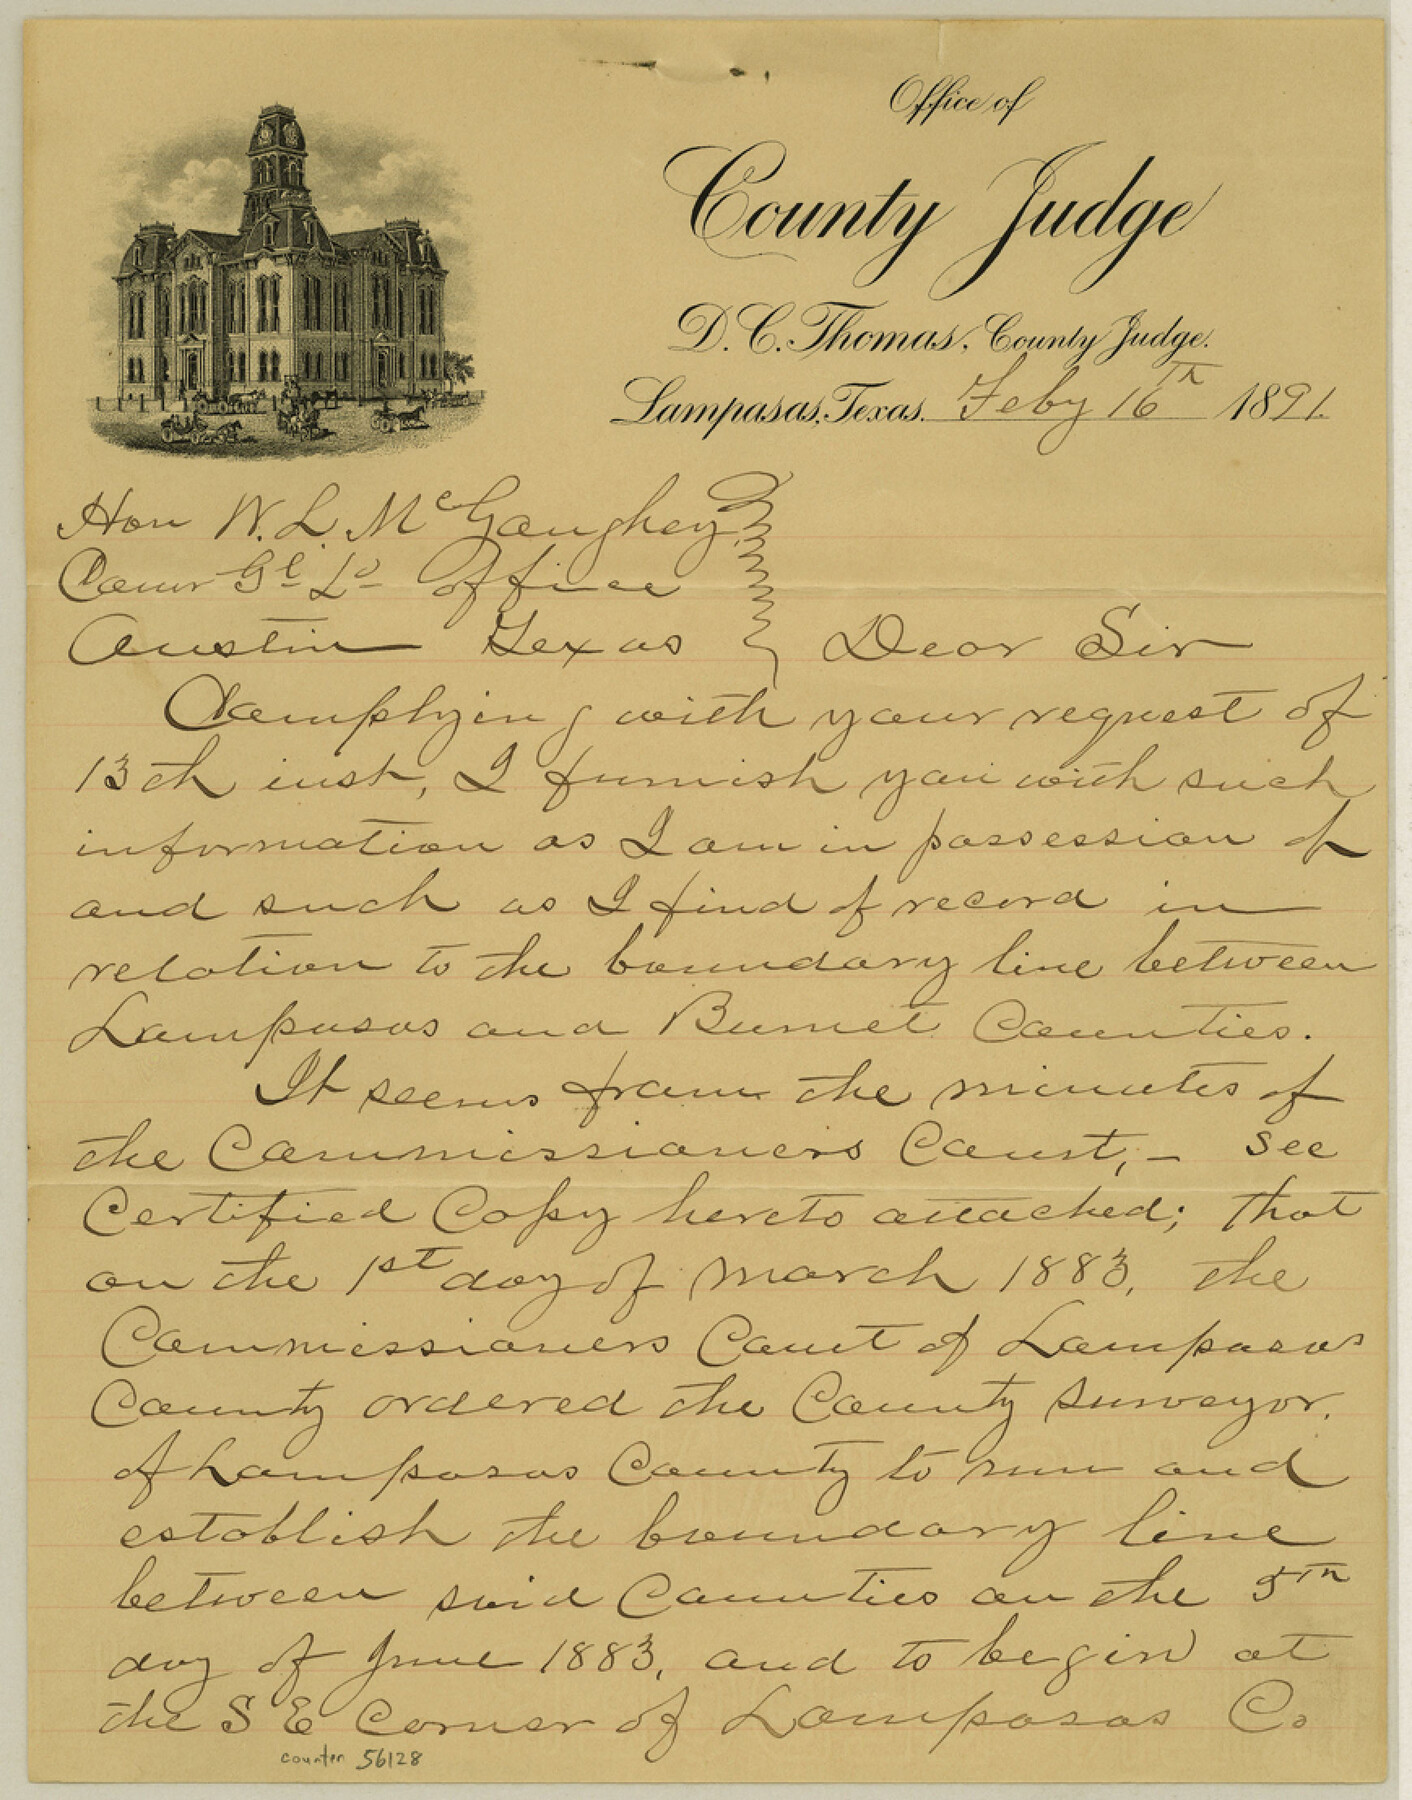 Office of
County Judge
D. C. Thomas, County Judge.
Lampasas, Texas. Feby 16th 1891.
Hon W. L. McGaughey
Comr Gl Lo office
Austin Texas Dear Sir
Complying with your request of
13th inst, I furnish you with such
information as I am in possession of
and such as I find of record in
relation to the boundary line between
Lampasas and Burnet Counties.
It seems from the minutes of
the Commissioners Court, – see
Certified Copy hereto attached; that
on the 1st day of March 1883, the
Commissioners Court of Lampasas
County ordered the County surveyor.
of Lampasas County to run and
establish the boundary line
between said Counties on the 5th
day of June 1883, and to begin at
the S E Corner of Lampasas Co
counter 56128